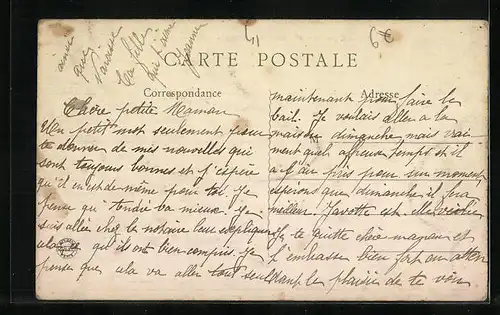 CARTE POSTALE
Correspondance
Adresse
Chère petite Maman
Un petit mot seulement pour
te donner de mes nouvelles qui
sont toujours bonnes et j'espère
qu'il en est de même pour toi. Je
pense qu' va mieux. Je
suis allée chez le notaire leur expliquer
cela et qu'ils ont bien compris. Je
pense que cela va aller tout seul
maintenant pour faire le
bail. Je voulais aller à la
maison dimanche mais vrai
ment quel affreux temps et il
a l'air pris pour un moment
espérons que dimanche il fera
meilleur. est
Je te quitte chère maman et
t'embrasse bien fort en atten
dant le plaisir de te voir
ainsi
que
Ta fille
qui t'aime